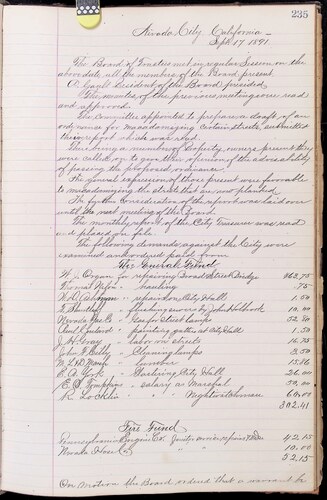 235
Nevada City, California
Sept. 17, 1891.
The Board of Trustees met in regular Session on the
above date all the members of the Board present.
President of the Board presided
The minutes of the previous meeting were read
and approved.
The committee appointed to prepare a draft of an
ordinance for macadamizing certain streets, submitted
their report which was read.
There being a number of property owners present they
were called on to give their opinion of the advisability
of passing the proposed ordinance.
The general expression of those present were favorable
to macadamizing the streets that are now planked
The further consideration of the report was laid over
until the next meeting of the Board.
The monthly report of the City Treasurer was read
and placed on file.
The following demands against the City were
examined and ordered paid from
The General Fund
W. J. Organ for repairing Broad Street Bridge 162.75
Thomas hauling .75
repairs on City Hall 1.50
flushing sewers by John Holbrook 10.00
Nevada Gas Co. Gas for Street Lamps
painting gutter at City Hall 1.50
J. H. Gray labor on streets 16.75
John T. Kelly Cleaning lamps 3.50
M. L. & D. Manf. lumber 15.86
E. A. York Sprinkling City Hall 26.00
E. O. Tompkins salary as Marshal 50.00
R. Locklin " Nightwatchman 60.00
302.41
Fire Fund
Pennsylvania Engine Co. Janitor services repairs 42.15
Nevada Hose 10.00
52.15
On Motion the Board ordered that a warrant be